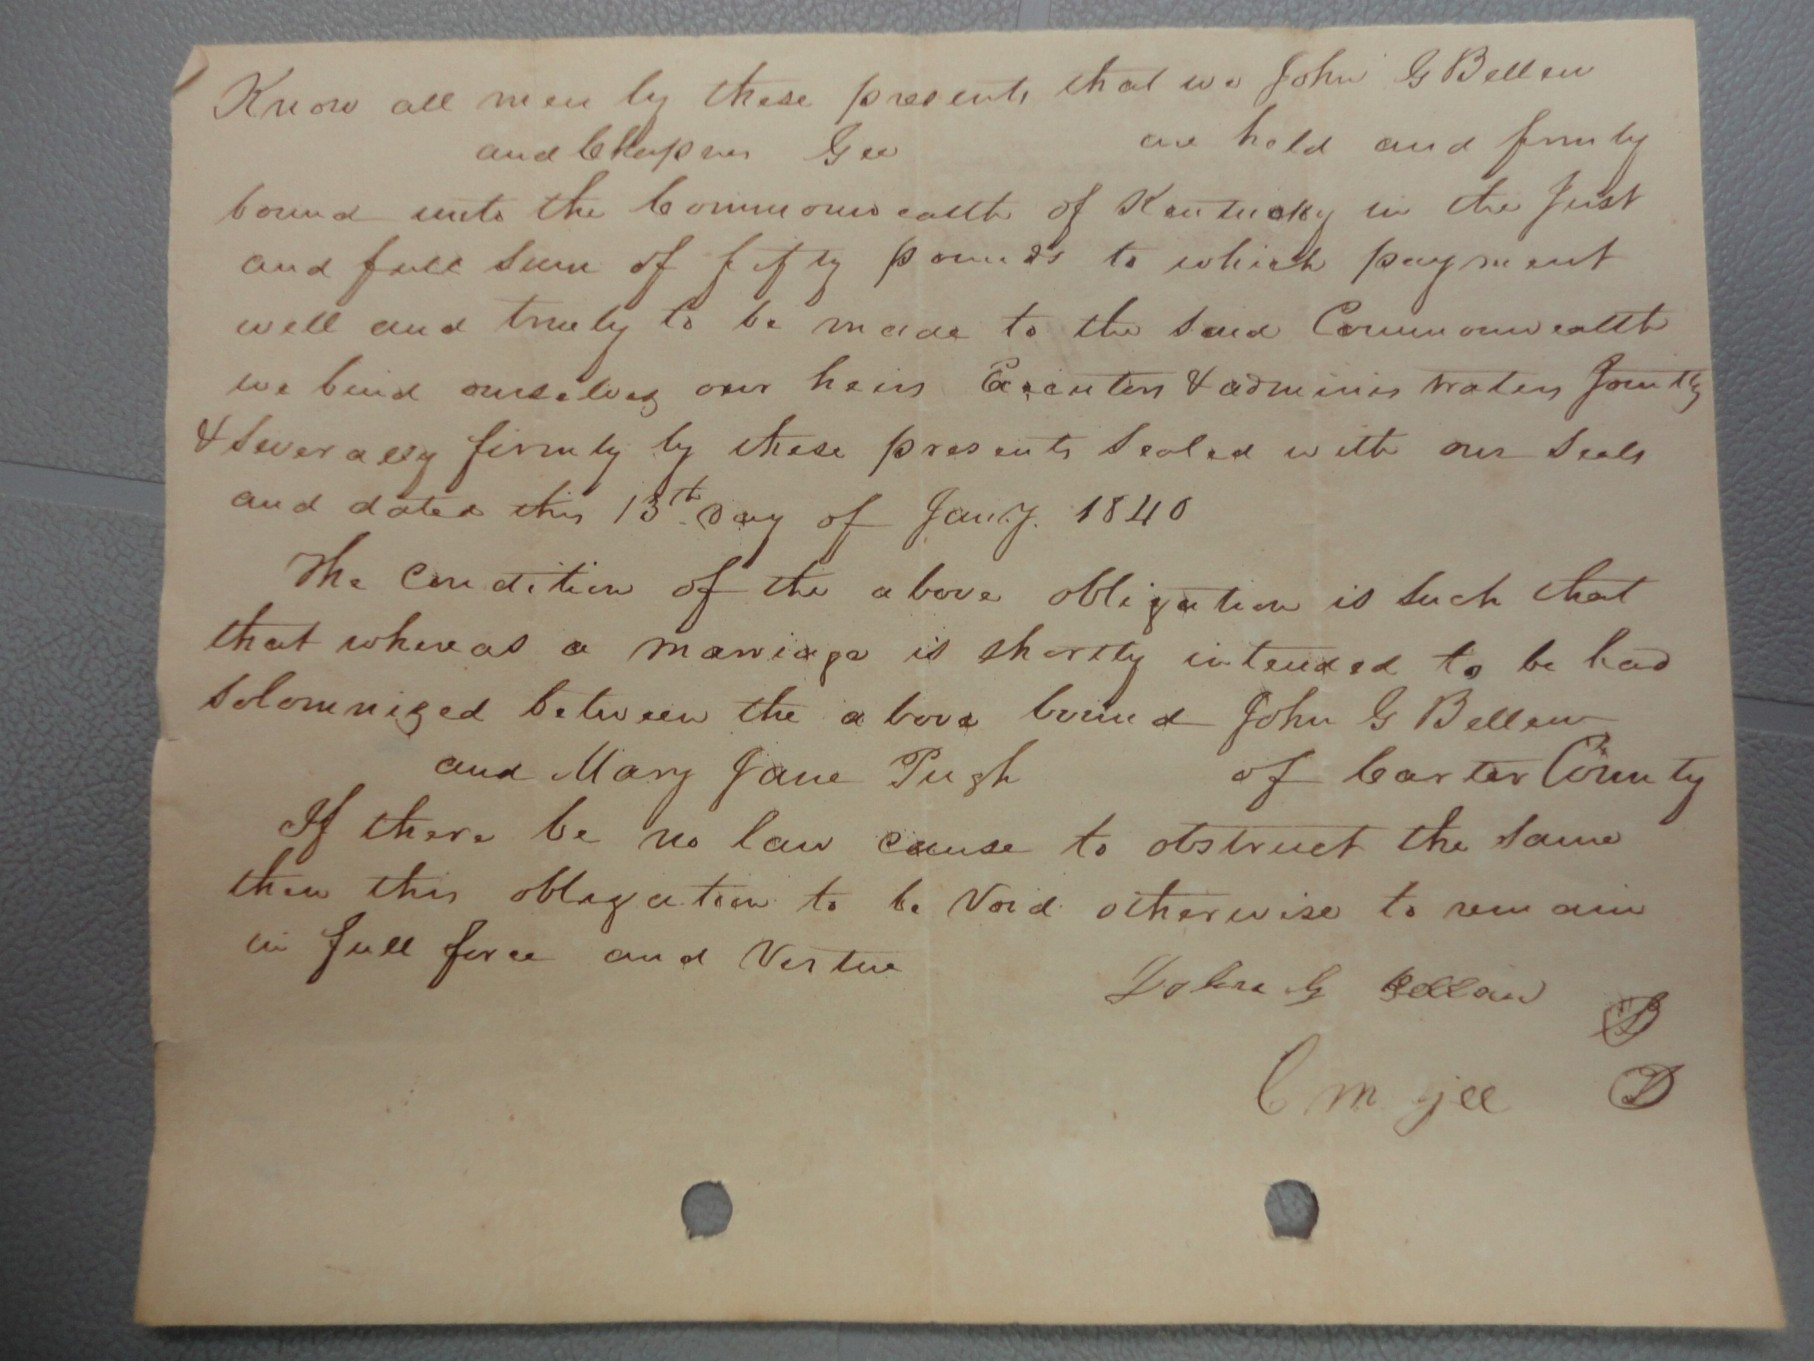 Know all men by these presents that we John G Bellew
and Chapman Gee are held and firmly
bound unto the Commonwealth of Kentucky in the Just
and full Sum of fifty pounds to which payment
well and truly to be made to the said Commonwealth
we bind ourselves our heirs Executors & administrators Jointly
& Severally firmly by these presents Sealed with our Seals
and dated this 13th Day of Jany. 1840
The condition of the above obligation is such that
that whereas a marriage is shortly intended to be had
Solomnized between the above bound John G Bellew
and Mary Jane Pugh of Carter County
If there be no law cause to obstruct the same
then this obligation to be Void otherwise to remain
in full force and Vertue
John G Bellew
C M gee